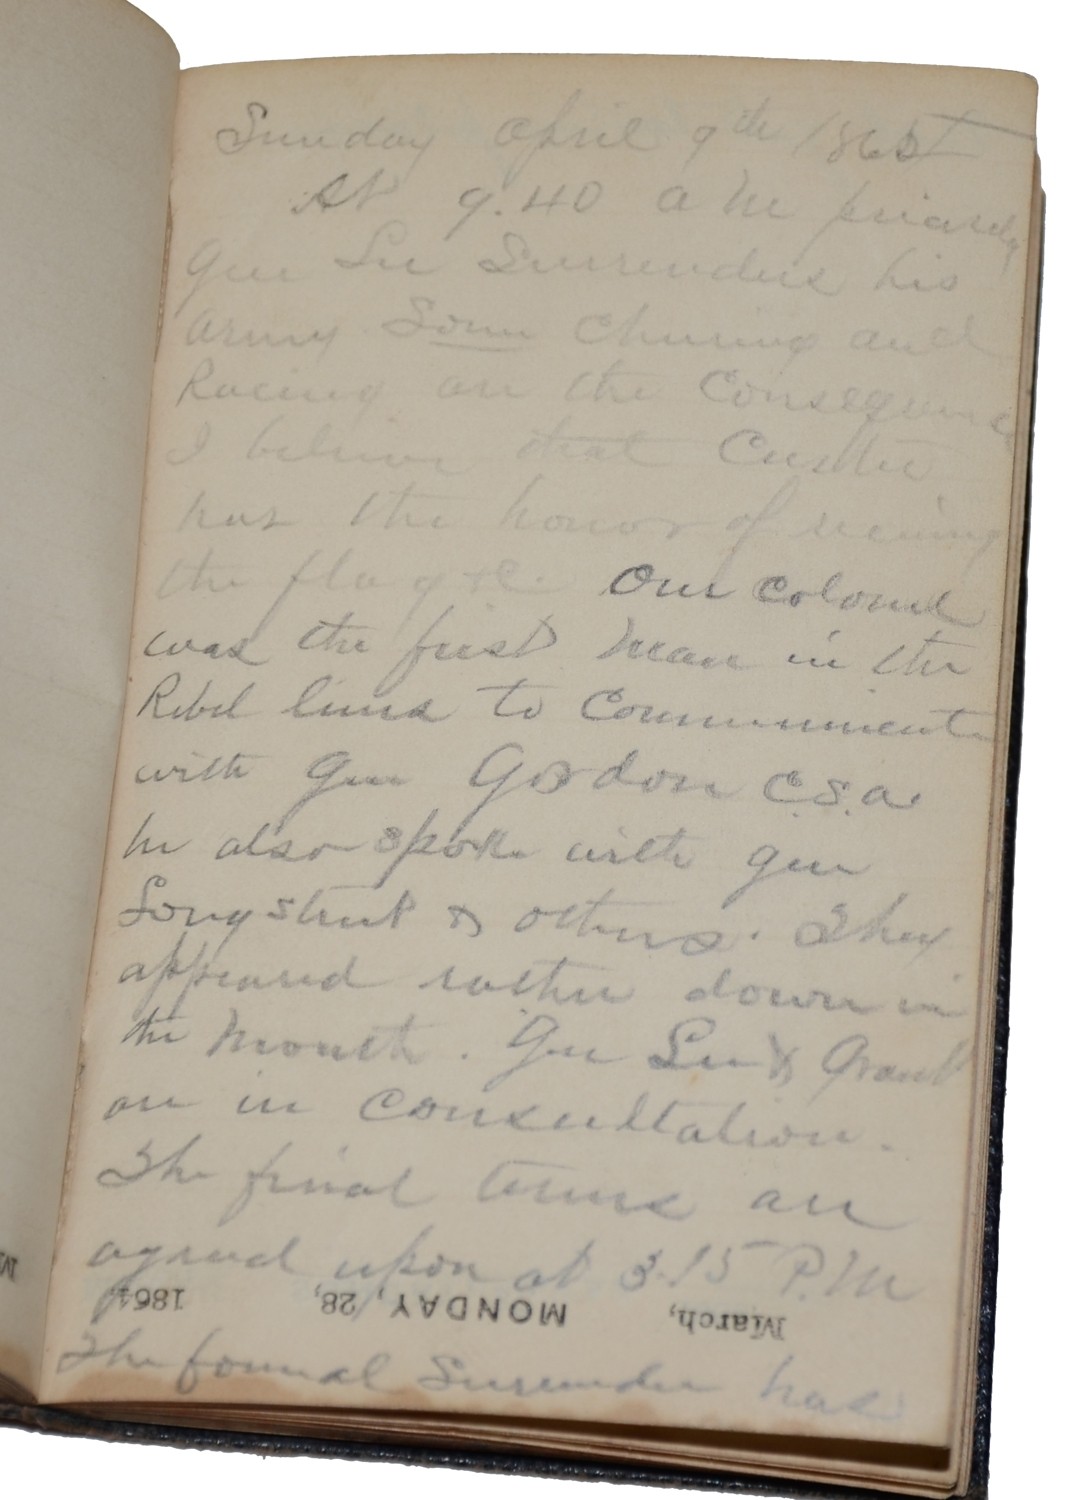 Sunday April 9th 1865
At 9.40 a m precisely
Gen Lee Surrenders his
army Some Cheering and
Racing on the Consequence
I believe that Custer
has the honor of receiving
the flag &c. Our Colonel
was the first man in the
Rebel lines to Communicate
with Gen Gordon C.S.A.
he also spoke with Gen
Longstreet & others. They
appeared rather down in
the mouth. Gen Lee & Grant
are in Consultation.
The final terms are
agreed upon at 3.15 P.M
March, MONDAY, 28, 1864
The formal Surrender has